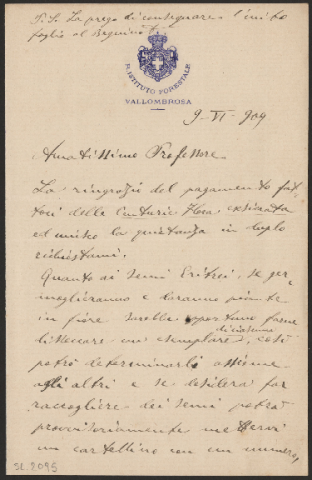 P.S. La prego di consegnare l'unito
foglio al Beguinot
R. ISTITUTO FORESTALE
VALLOMBROSA
9-VI-909
Amatissimo Professore
La ringrazio del pagamento fat
tomi della Centuria Flora exsiccata
ed unisco la quietanza in duplo
richiestami.
Quanto ai semi Eritrei, se ger
mogliranno e daranno piante
in fiore sarebbe opportuno farne
diciascuno
disseccare un esemplare, così
potrò determinarli assieme
agli altri e se desidera far
raccogliere dei semi potrà
provvisoriamente mettervi
un cartellino con un numero,
SL.2095